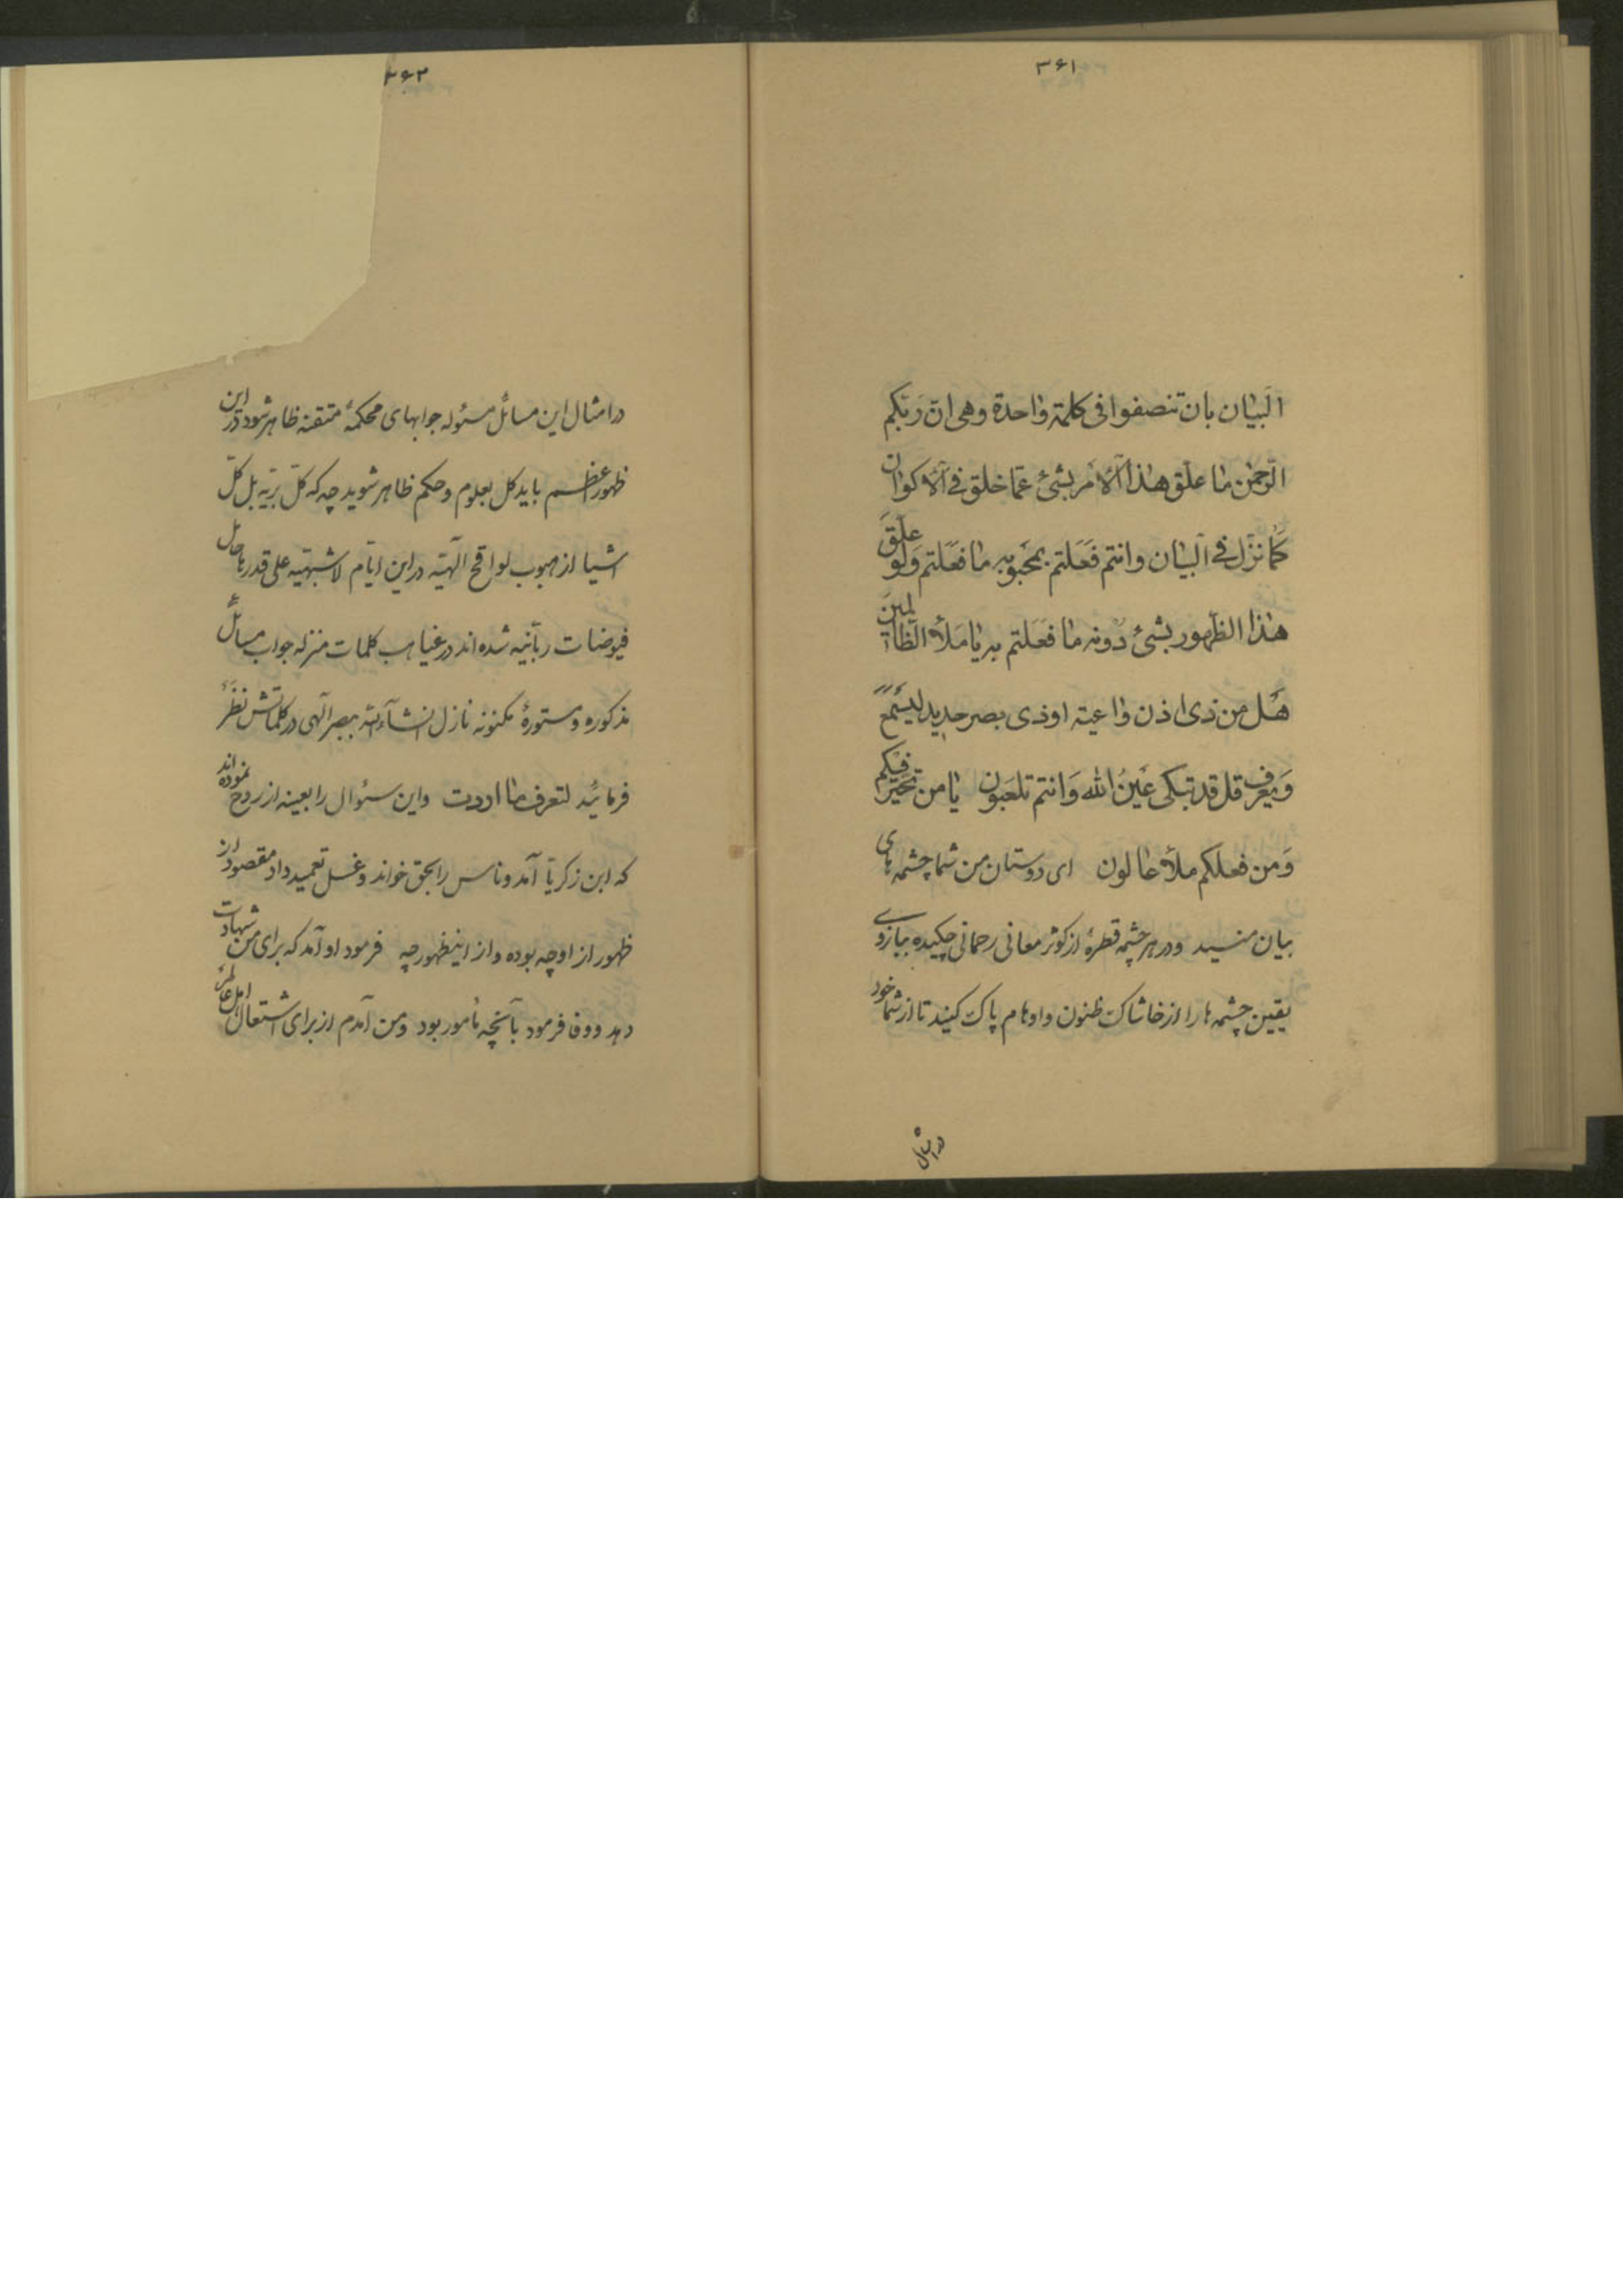 ۳۶۱
البیان بان تنصفوا فی کلمة واحدة وهی ان ربکم
الرحمن ما علق هذا الامر بشیء عما خلق فی الاکوان
کما نزل فی البیان وانتم فعلتم بمحبوبه ما فعلتم ولو علق
هذا الظهور بشیء دونه ما فعلتم به یا ملأ الظالمین
هل من ذی اذن واعیة او ذی بصر حدید لیسمع
ویعرف قل قد تبکی عین الله وانتم تلعبون یا من تحیر فیکم
ومن فعلکم ملأ عالون ای دوستان من شما چشمه های
بیان منید ودر هر چشمه قطرهٔ از کوثر معانی رحمانی چکیده ببازوی
یقین چشمه ها را از خاشاک ظنون واوهام پاک کنید تا از شما خود
در امثال
۳۶۲
در امثال این مسائل مسئوله جوابهای محکمهٔ متقنه ظاهر شود در این
ظهور اعظم باید کل بعلوم وحکم ظاهر شوید چه که کل بریّه بل کل
اشیا از هبوب لواقح الهیّه در این ایّام لا شبهیه علی قدرها حامل
فیوضات ربانیه شده اند در غیاهب کلمات منزله جواب مسائل
مذکوره ومستورهٔ مکنونه نازل انشاءالله ببصر الهی در کلماتش نظر
فرمائید لتعرف ما اردت واین سئوال را بعینه از روح نموده اند
که ابن زکریا آمد وناس را بحق خواند وغسل تعمید داد مقصود از
ظهور از او چه بوده واز اینظهور چه فرمود او آمد که برای من شهادت
دهد ووفا فرمود بآنچه مأمور بود ومن آمدم از برای اشتعال اهل عالم